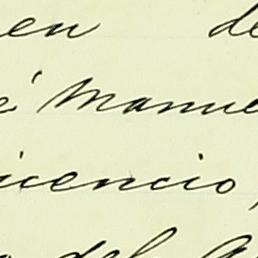 en de
é Manue
icencio,
o del